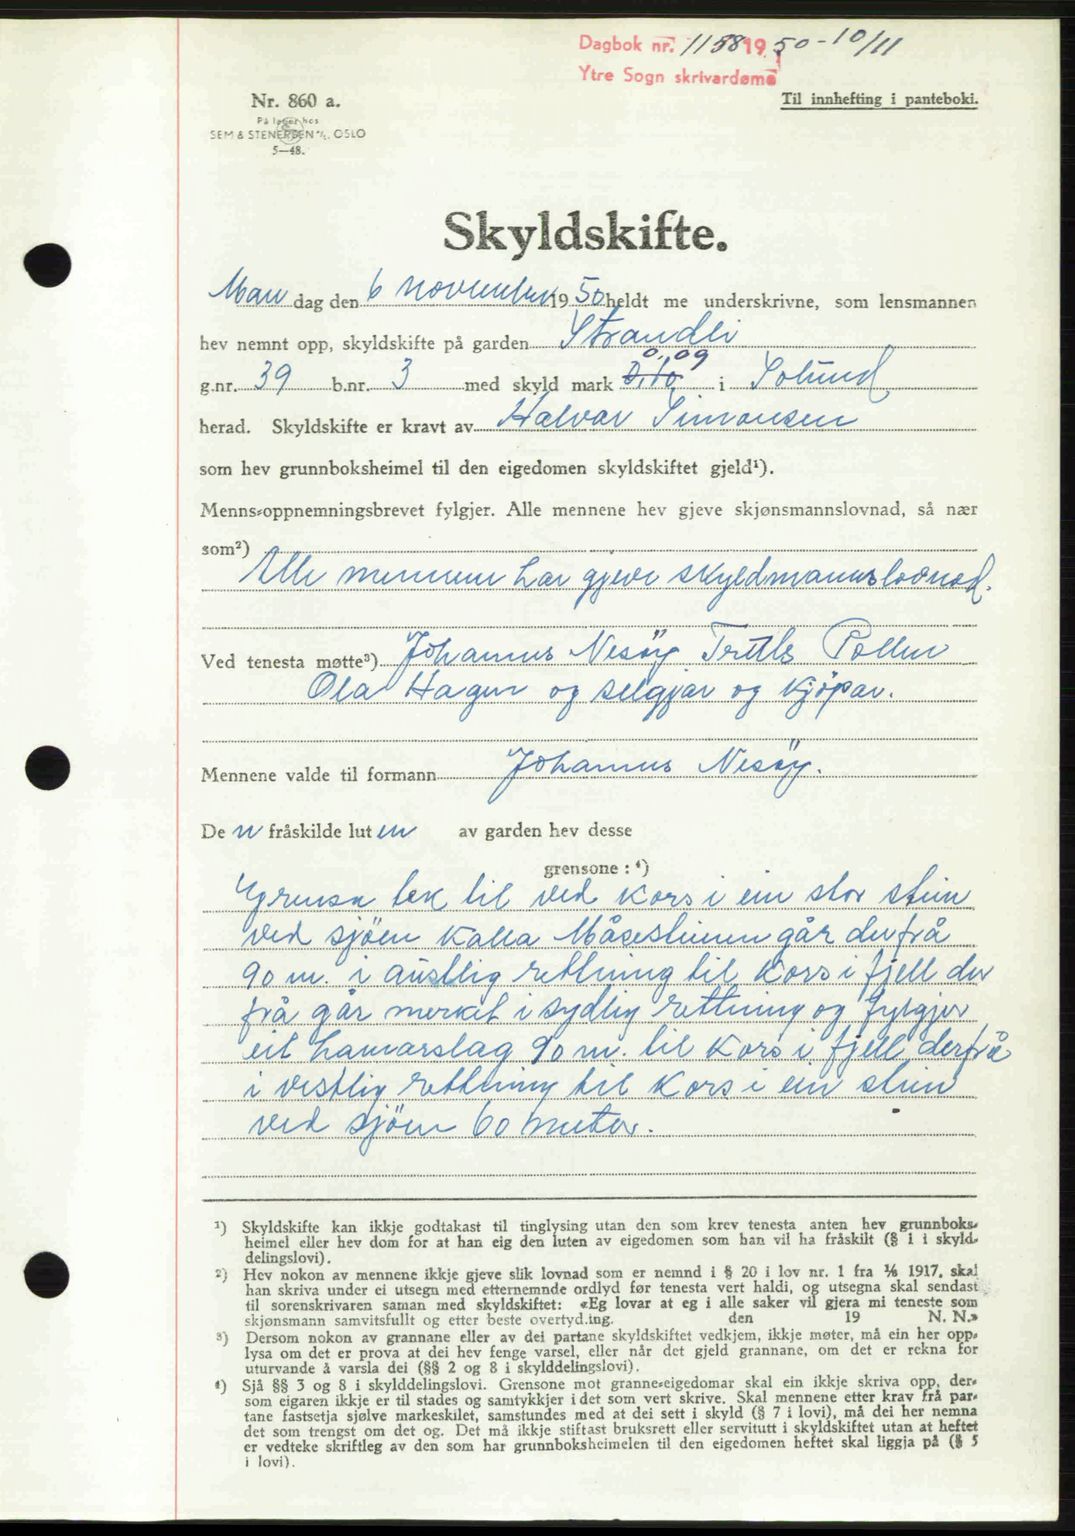 Dagbok nr. 1158 1950 - 10/11
Ytre Sogn skrivardøme
Nr. 860 a.
Til innhefting i panteboki.
På lager hos
SEM & STENERSEN A/S, OSLO
5—48.
Skyldskifte.
Man dag den 6 November 1950 heldt me underskrivne, som lensmannen
hev nemnt opp, skyldskifte på garden Strandli
0,09
g.nr. 39 b.nr. 3 med skyld mark 0,10 i Solund
herad. Skyldskifte er kravt av Halvar Simonsen
som hev grunnboksheimel til den eigedomen skyldskiftet gjeld¹).
Menns-oppnemningsbrevet fylgjer. Alle mennene hev gjeve skjønsmannslovnad, så nær
som²)
Alle mennene har gjeve skyldmannslovnad.
Ved tenesta møtte³) Johannes Nesöy Terties Pollen
Ola Hagen og selgjar og kjöpar.
Mennene valde til formann Johannes Nesöy.
De n fråskilde luten av garden hev desse
grensone : ⁴)
Grensa tek til ved kors i ein stor stein
ved sjöen kalla Måsesteinen går derfrå
90 m. i austleg rettning til kors i fjell der
frå går merket i sydlig rettning og fylgjer
eit hamarslag 90 m. til kors i fjell derfrå
i vestlig rettning til kors i ein stein
ved sjöen 60 meter.
¹) Skyldskifte kan ikkje godtakast til tinglysing utan den som krev tenesta anten hev grunnboks-
heimel eller hev dom for at han eig den luten av eigedomen som han vil ha fråskilt (§ 1 i skyld-
delingslovi).
²) Hev nokon av mennene ikkje gjeve slik lovnad som er nemnd i § 20 i lov nr. 1 fra ⅙ 1917, skal
han skriva under ei utsegn med etternemnde ordlyd før tenesta vert haldi, og utsegna skal sendast
til sorenskrivaren saman med skyldskiftet: «Eg lovar at eg i alle saker vil gjera mi teneste som
skjønsmann samvitsfullt og etter beste overtyding. den 19 N. N.»
³) Dersom nokon av grannane eller av dei partane skyldskiftet vedkjem, ikkje møter, må ein her opp-
lysa om det er prova at dei hev fenge varsel, eller når det gjeld grannane, om det er rekna for
uturvande å varsla dei (§§ 2 og 8 i skylddelingslovi).
⁴) Sjå §§ 3 og 8 i skylddelingslovi. Grensone mot granne-eigedomar skal ein ikkje skriva opp, der-
som eigaren ikkje er til stades og samtykkjer i det som vert skrive. Skal mennene etter krav frå par-
tane fastsetja sjølve markeskilet, samstundes med at dei sett i skyld (§ 7 i lovi), må dei her nemna
det som trengst om det og. Det må ikkje stiftast bruksrett eller servitutt i skyldskiftet utan at heftet
er vedteke skriftleg av den som har grunnboksheimelen til den eigedomen heftet skal liggja på (§ 5
i lovi).